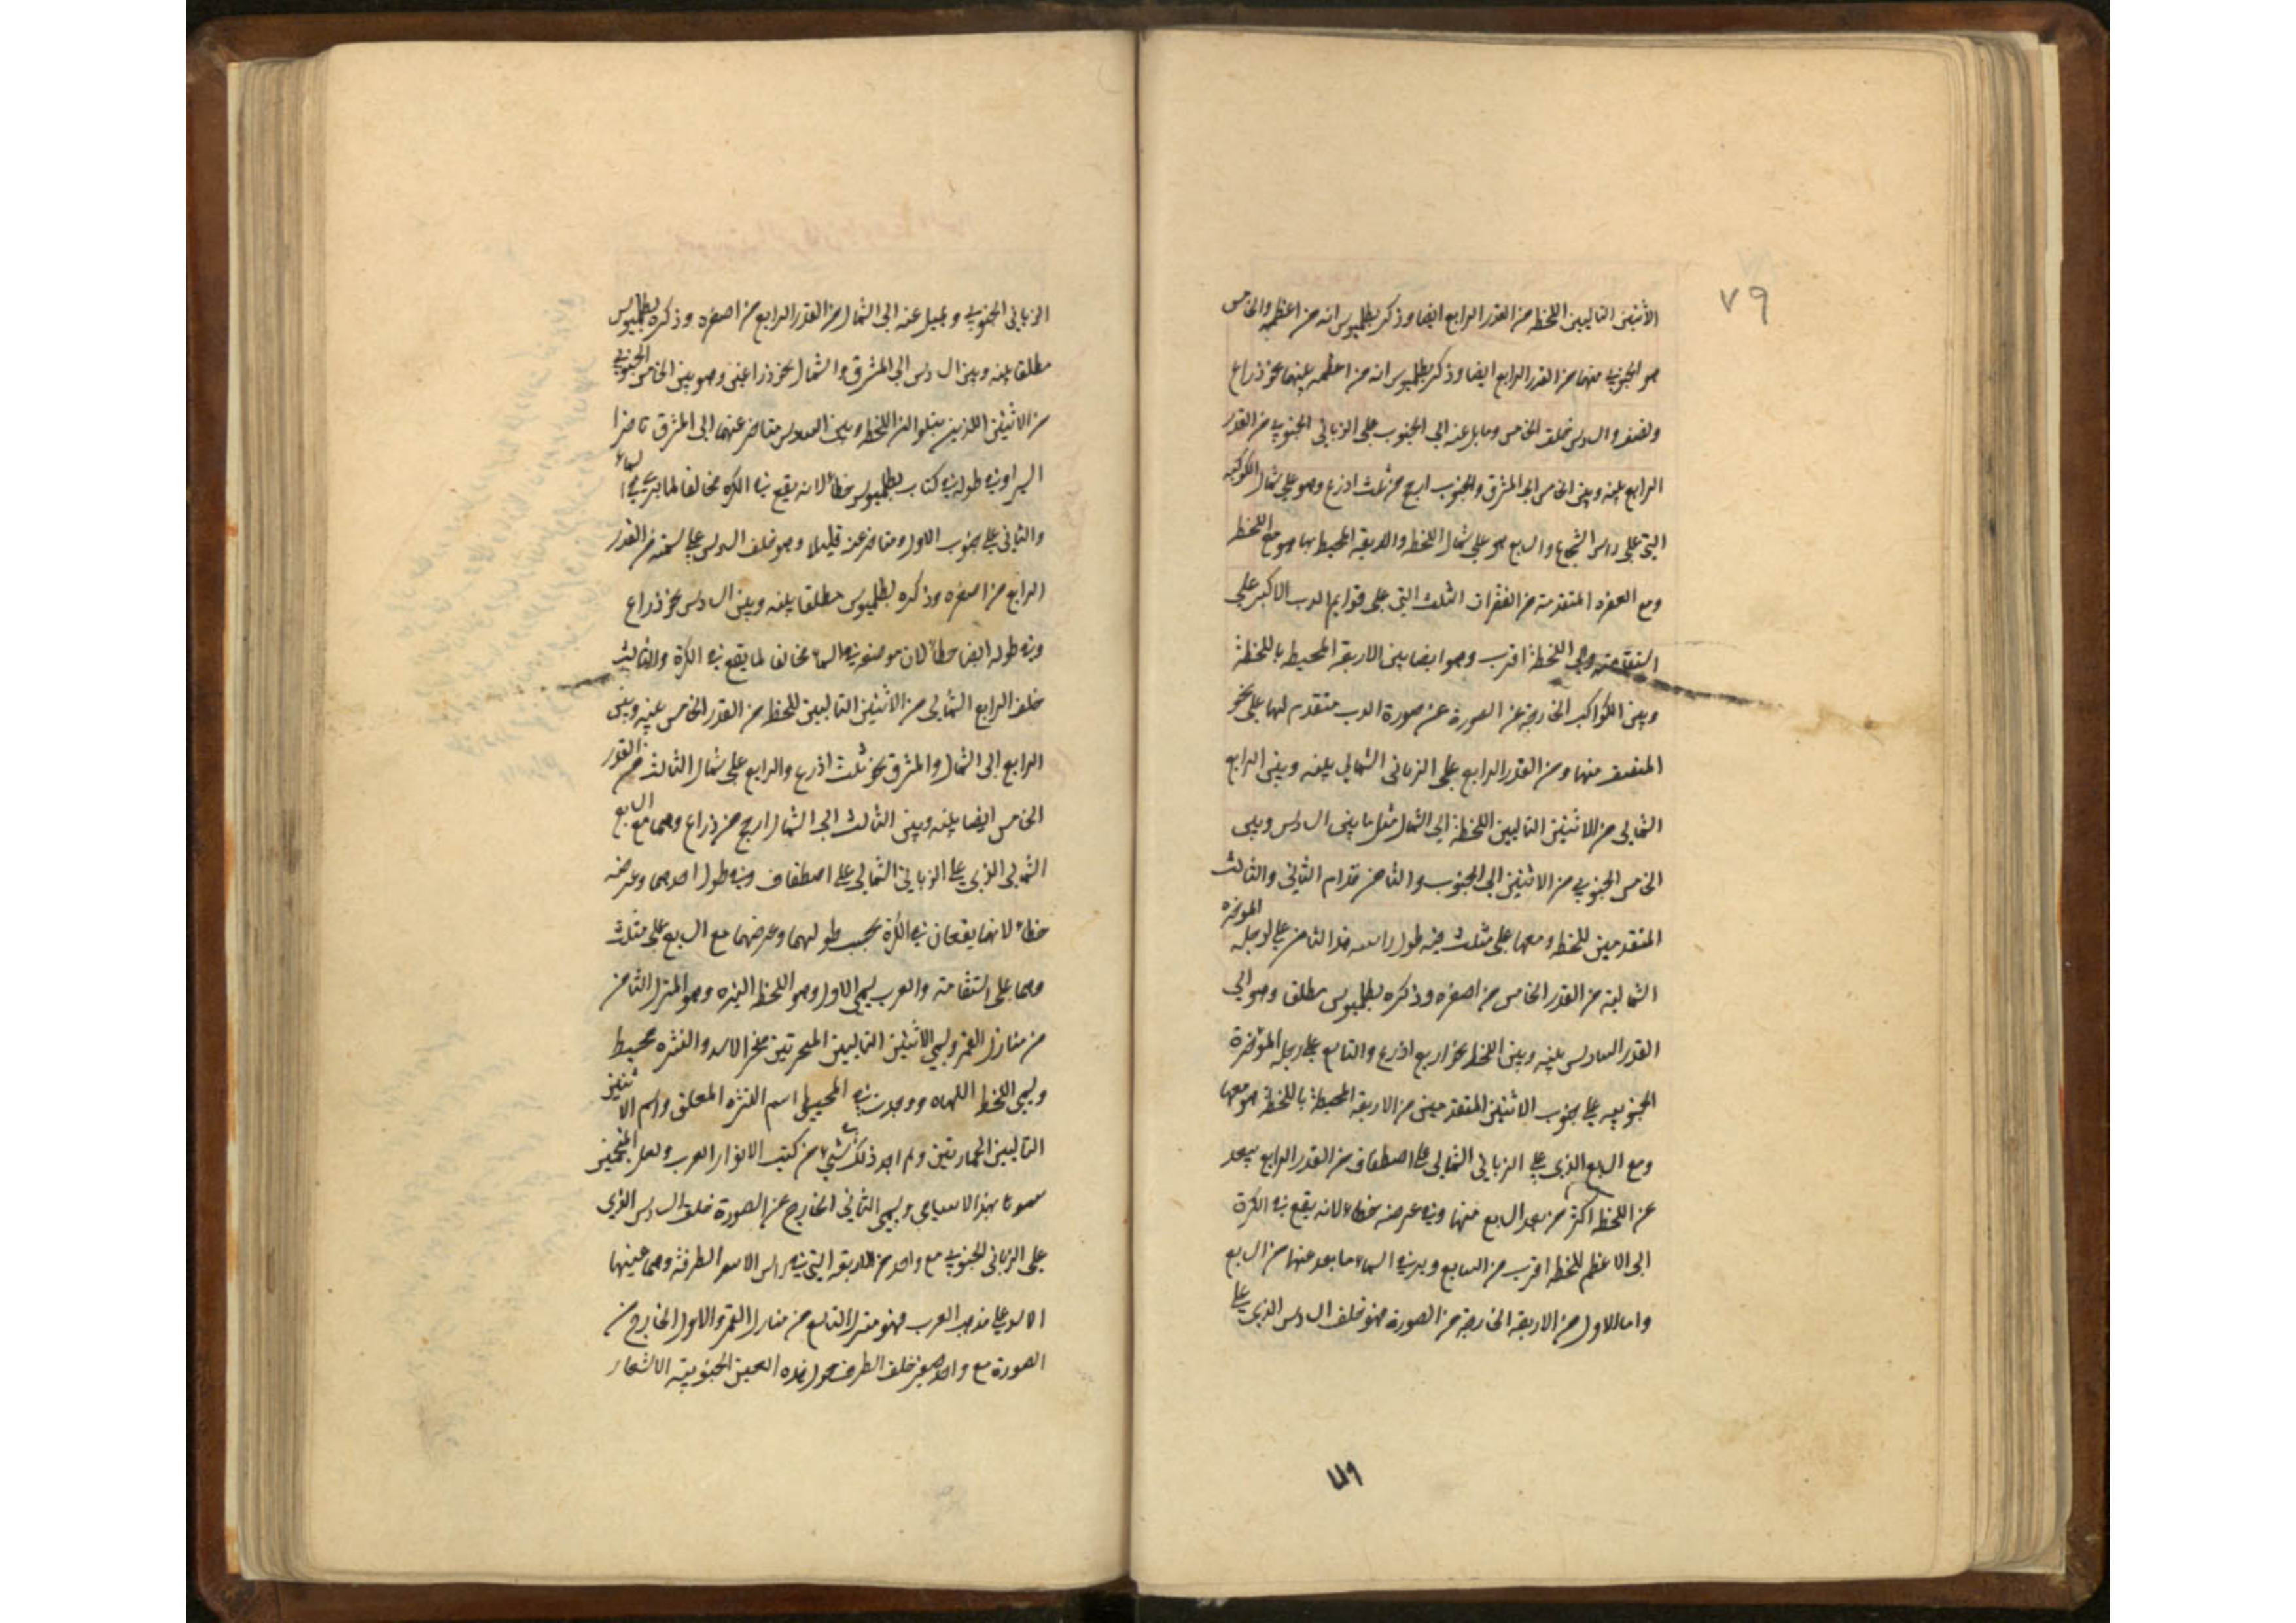 ٧٩
الاثنين التاليين اللخطه من القدر الرابع ايضا وذكر بطلميوس انه من اعظمه والخامس
هو الجنوبي منهما من القدر الرابع ايضا وذكر بطلميوس انه من اعظمه بينهما نحو ذراع
ونصف والسادس خلف الخامس ومايل عنه الى الجنوب على الزبانى الجنوبي من القدر
الرابع بينه وبين الخامس الى المشرق والجنوب ارجح من ثلث اذرع وهو على شمال الكوكبه
التي على راس الشجاع والسابع هو على شمال اللخطه والاربعة المحيطة بها وهو مع اللخطه
ومع المتقدمة من القفزات الثلث التي على قوايم الدب الاكبر على
استقامته والى اللخطه اقرب وهو ايضا بين الاربعة المحيطه باللخطة
وبين الكواكب الخارجة عن الصورة عن صورة الدب متقدم لها على نحو
المنصف منها ومن القدر الرابع على الزبانى الشمالي بينه وبين الرابع
الشمالي من الاثنين التاليين اللخطه الى الشمال مثل ما بين السادس وبين
الخامس الجنوبي من الاثنين الى الجنوب والثامن قدام الثاني والثالث
المتقدمين للخطه ومعهما على مثلث فيه طول راسه هذا الثامن على رجله المؤخره
الشمالية من القدر الخامس من اصغره وذكره بطلميوس مطلقا وهو الى
القدر السادس بينه وبين اللخطه نحو اربع اذرع والتاسع على رجله المؤخرة
الجنوبيه على جنوب الاثنين المتقدمين من الاربعة المحيطة باللخطة هو معهما
ومع السابع الذي على الزبانى الشمالي على اصطفاف من القدر الرابع يبعد
عن اللخطه اكثر من بعد السابع عنها وفي عرضه خطاء لانه يقع في الكرة
الى الاعظم للخطه اقرب من السابع ويرى في السماء ما بعد عنها من السابع
واما الاول من الاربعة الخارجة من الصورة فهو خلف السادس الذي على
٧٩
الزبانى الجنوبي ويميل عنه الى الشمال من القدر الرابع من اصغره وذكره بطلميوس
مطلقا بينه وبين السادس الى المشرق والشمال نحو ذراعين وهو بين الخامس الجنوبي
من الاثنين اللذين يتلوان اللخطه وبين السادس متاخر عنهما الى المشرق تاخرا
يسيرا وفي طوله في كتاب بطلميوس خطاء لانه يقع في الكرة مخالفا لما يرى في السماء
والثاني على جنوب الاول ومتاخر عنه قليلا وهو خلف السادس على سمته من القدر
الرابع من اصغره وذكره بطلميوس مطلقا بينه وبين السادس نحو ذراع
وفي طوله ايضا خطاء لان موضعه في السماء مخالف لما يقع في الكرة والثالث
خلف الرابع الشمالي من الاثنين التاليين للخطه من القدر الخامس بينه وبين
الرابع الى الشمال والمشرق نحو ثلث اذرع والرابع على شمال الثالث من القدر
الخامس ايضا بينه وبين الثالث الى الشمال ارجح من ذراع وهما مع السابع
الشمالي الذي على الزبانى الشمالي على اصطفاف وفي طول احدهما وعرضه
خطاء لانهما يقعان في الكرة بحسب طولهما وعرضهما مع السابع على مثلث
وهما على استقامة والعرب يسمي الاول وهو اللخطه النثره وهو المنزل الثامن
من منازل القمر ويسمي الاثنين التاليين المنخرتين منخر الاسد والنثره محيط
ويسمي اللخطه اللهاه ووجدت في المحيطي اسم النثره المعلف واسم الاثنين
التاليين الحمارين ولم اجد ذلك في شيء من كتب الانوار العرب ولعل المنجمين
سموها بهذا الاسامي ويسمي الثاني الخارج عن الصورة خلف السادس الذي
على الزبانى الجنوبي مع واحد من الاربعة التي في راس الاسد الطرفة وهما عينا
الاسد على مذهب العرب فهو منزل التاسع من منازل القمر والاول الخارج من
الصورة مع واحد صغير خلف الطرف حول هذه العين الجنوبية الاشفار